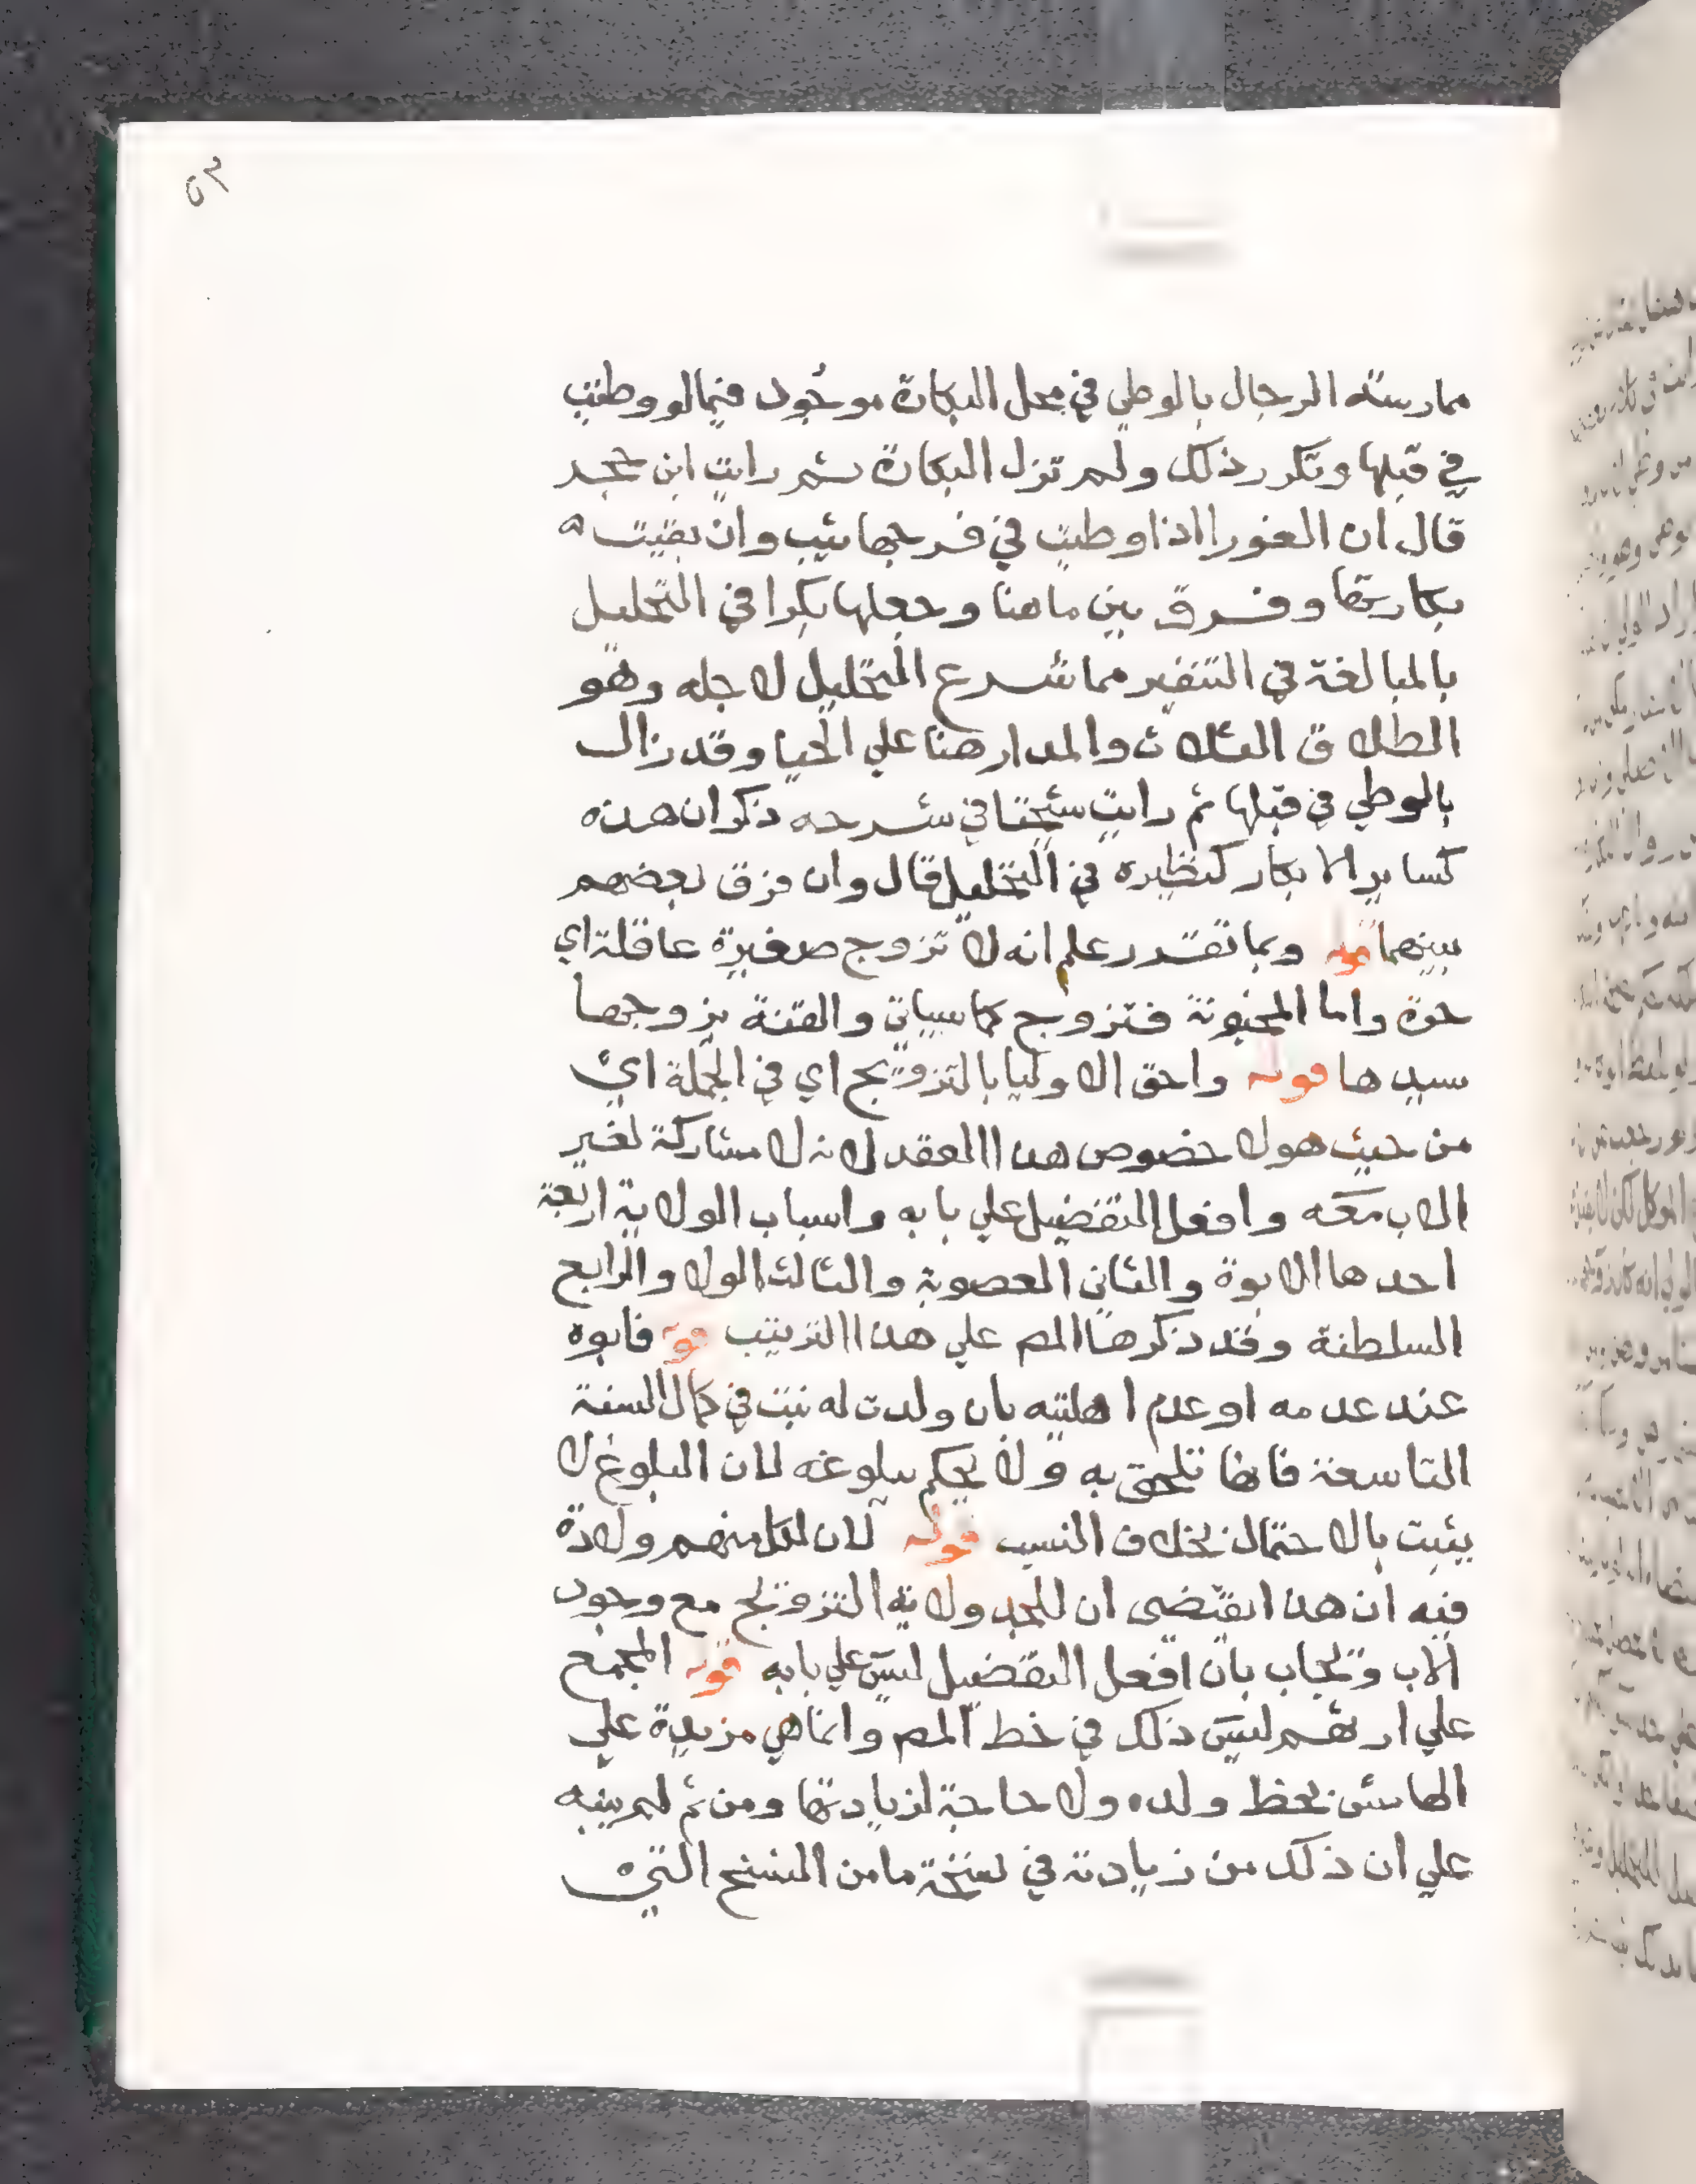 ٥٣
ممارسته الرجال بالوطي في محل البكارة موجود فيما لو وطئت
في قبلها وتكرر ذلك ولم تزل البكارة ثم رايت ابن حجر
قال ان الغورا اذا وطيت في فرجها ثيب وان بقيت
بكارتها وفرق بين ما هنا وجعلها بكرا في التحليل
بالمبالغة في التنفير مما شرع التحليل لاجله وهو
الطلاق الثلاث والمدار هنا علي الحيا وقد زال
بالوطي في قبلها ثم رايت شيخنا في شرحه ذكر ان هذه
كساير الابكار كنظيره في التحليل قال وان فرق بعضهم
بينهما قوله وبما تقرر علم انه لا تزوج صغيرة عاقلة اي
حرة واما المجنونة فتزوج كما سياتي والقنة يزوجها
سيدها قوله واحق الاوليا بالتزويج اي في الجملة اي
من حيث هو لا خصوص هذا العقد لانه لا مشاركة لغير
الاب معه وافعل التفضيل علي بابه واسباب الولاية اربعة
احدها الابوة والثاني العصوبة والثالث الولا والرابع
السلطنة وقد ذكرها المص علي هذا الترتيب قوله فابوه
عند عدمه او عدم اهليته بان ولدت له بنت في كمال السنة
التاسعة فانها تلحق به ولا يحكم ببلوغه لان البلوغ لا
يثبت بالاحتمال بخلاف النسب قوله لان لكل منهم ولادة
فيه ان هذا يقتضي ان للجد ولاية التزويج مع وجود
الاب ويجاب بان افعل التفضيل ليس علي بابه قوله المجمع
علي ارثهم ليس ذلك في خط المص وانما هي مزيدة علي
الهامش بخط ولده ولا حاجة لزيادتها ومن ثم لم ينبه
علي ان ذلك من زيادته في نسخة ما من النسخ التي